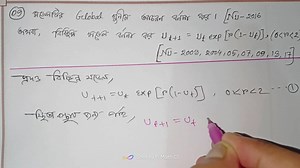 (03) মডেলটির Global সুস্থিতি আলোচনা কর। [NU-2016
অথবা, বিচ্ছিন্ন মডেল বর্ণনা কর u_{t+1} = u_t exp[r(1-u_t)], (0<r<2
[NU-2002, 2004, 05, 07, 09, 13, 17]
বিচ্ছিন্ন মডেল,
u_{t+1} = u_t exp[r(1-u_t)], 0<r<2 --- ①
u_{t+1} = u_t